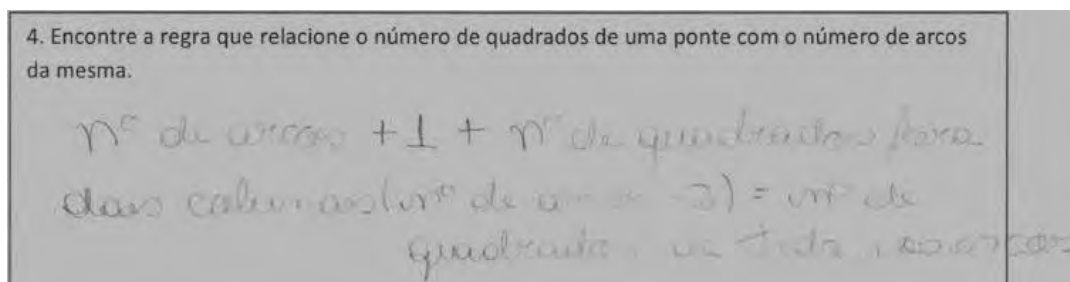 4. Encontre a regra que relacione o número de quadrados de uma ponte com o número de arcos
da mesma.
nº de arcos +1 + nº de quadrados fora
das colunas (nº de = nº de